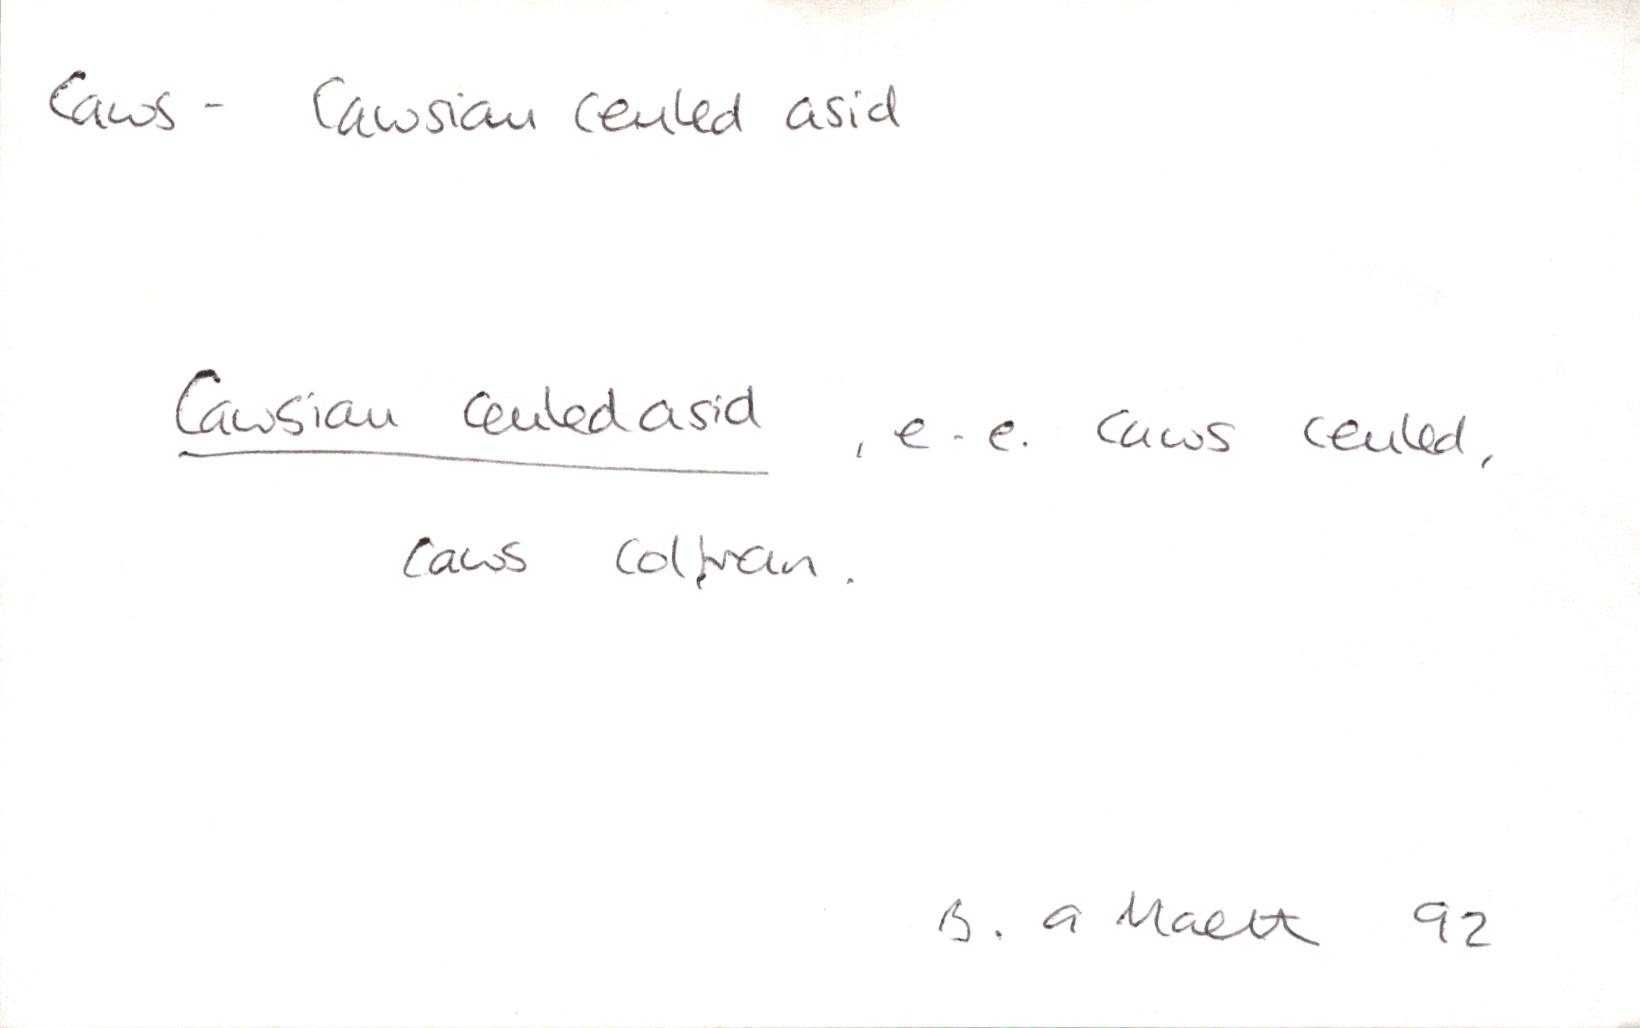 Caws - Cawsian ceuled asid
Cawsian ceuled asid, e.e. caws ceuled,
caws colfran.
B. a Maeth 92